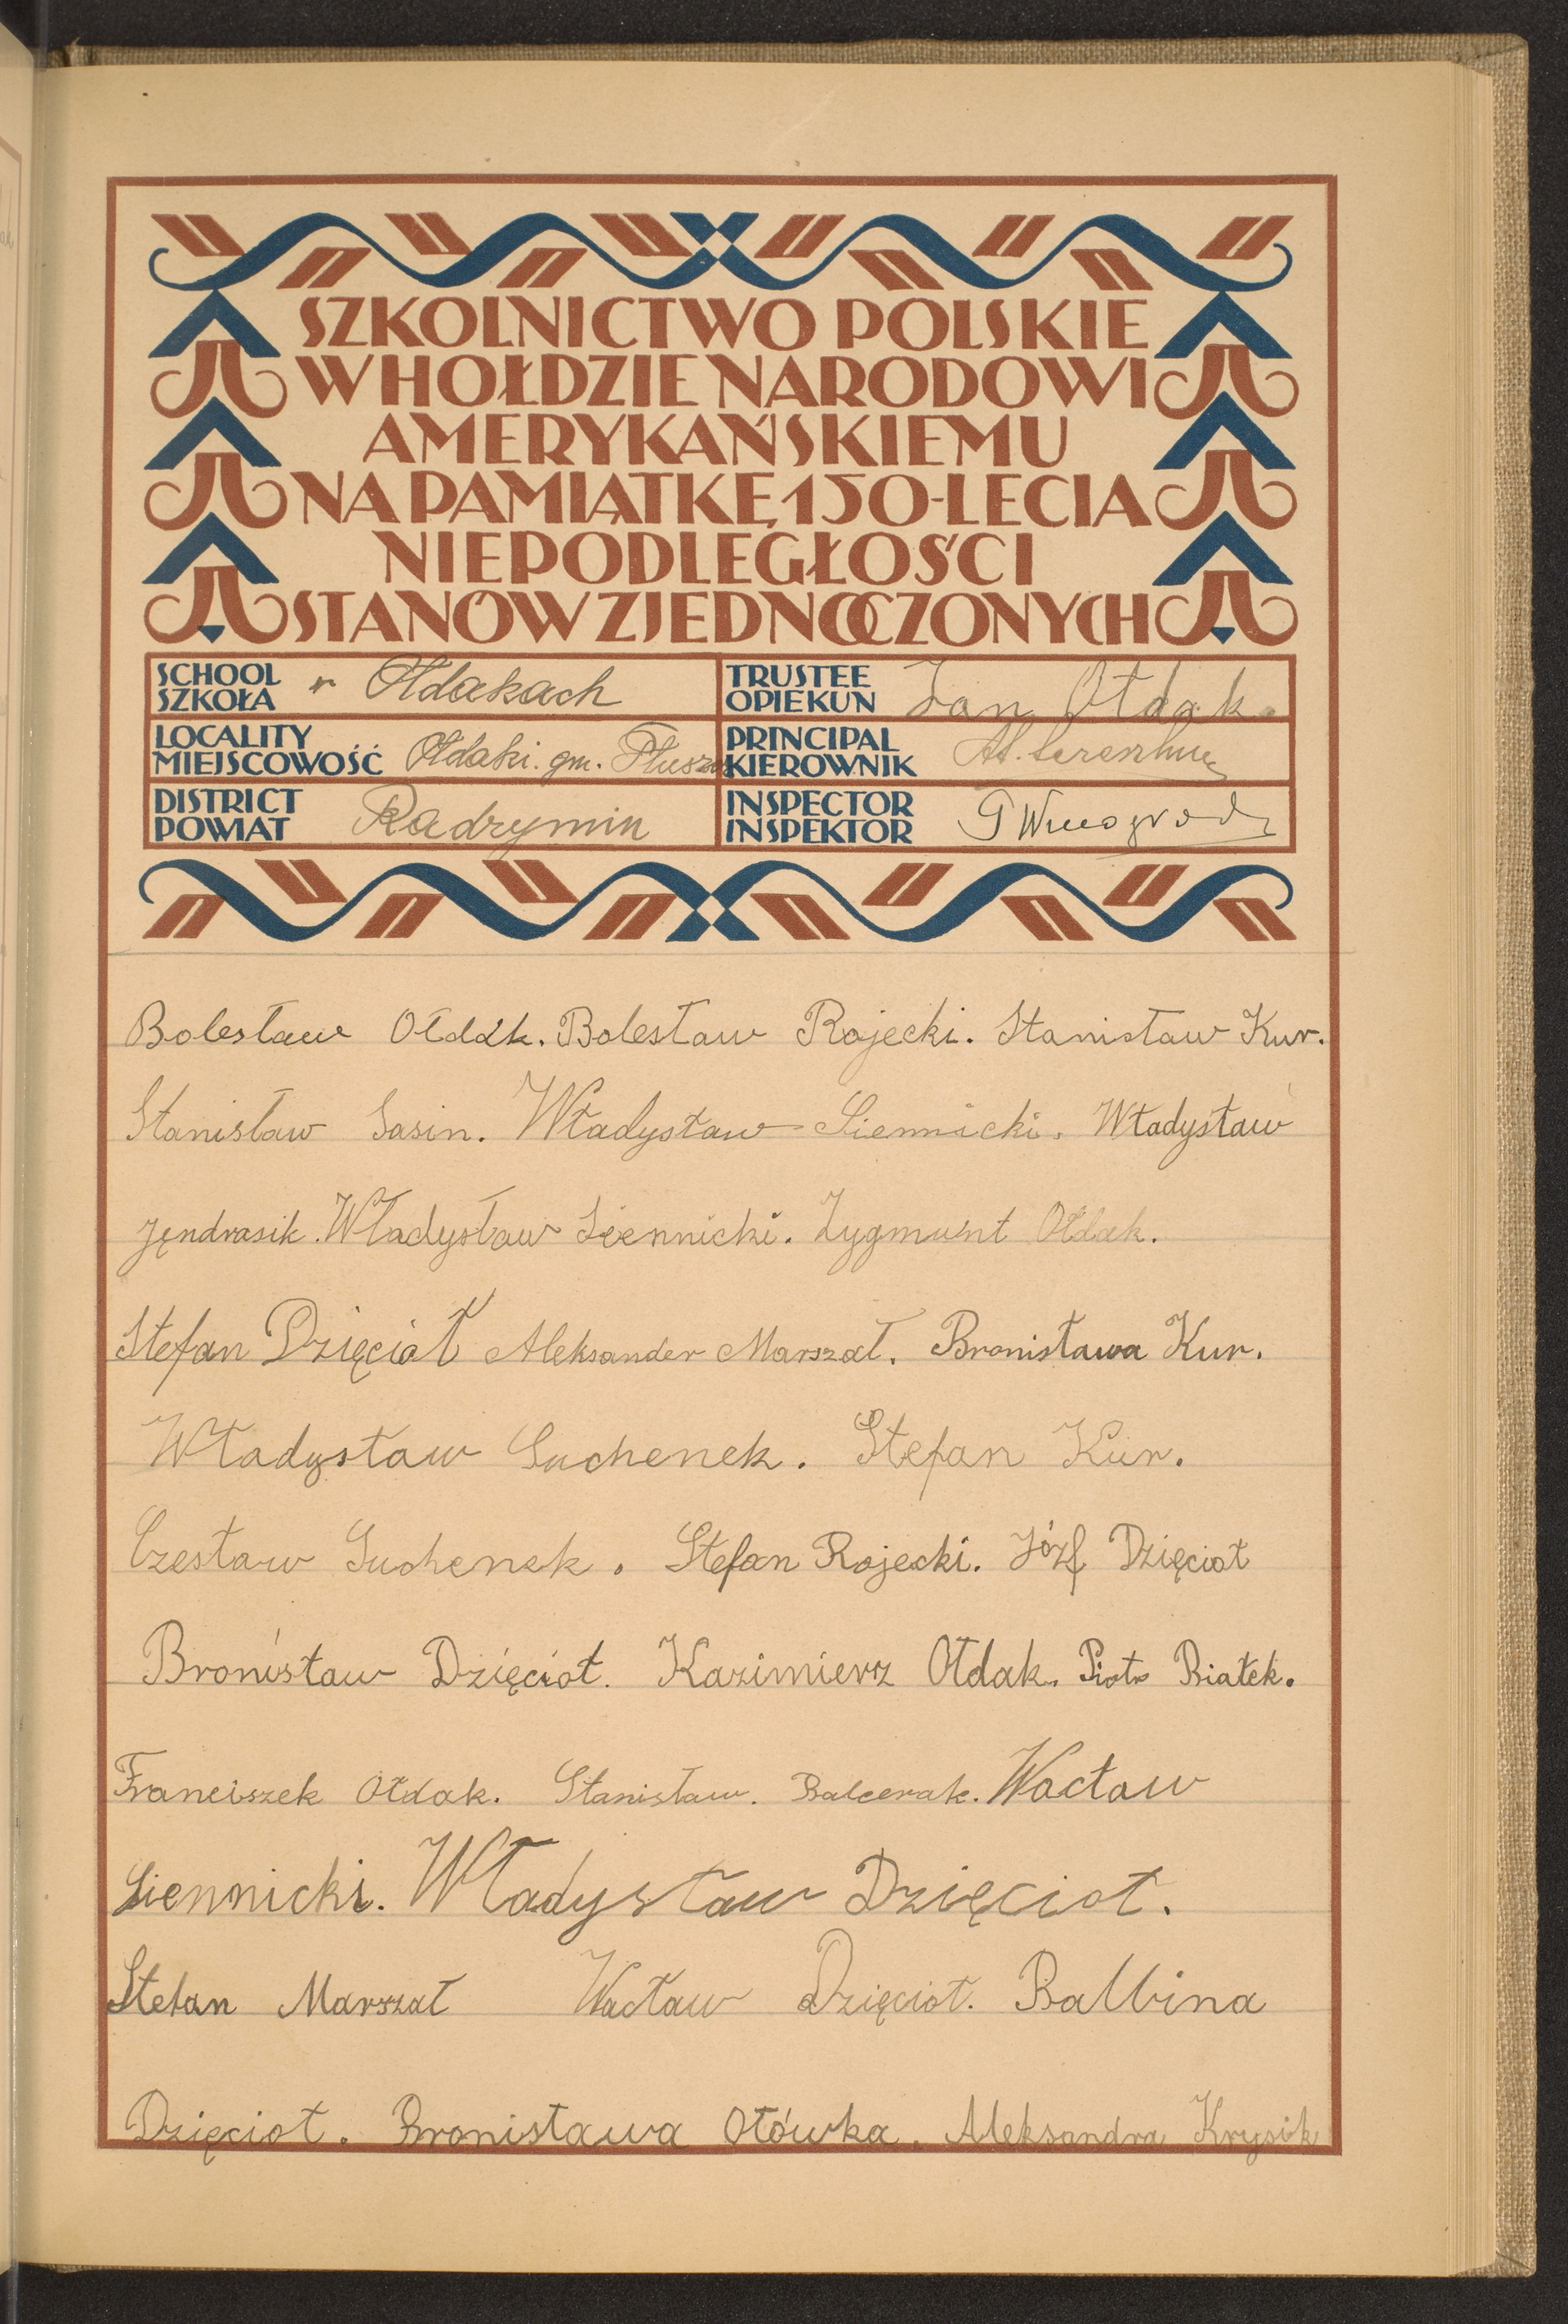 SZKOLNICTWO POLSKIE
W HOŁDZIE NARODOWI
AMERYKAŃSKIEMU
NA PAMIĄTKĘ 150-LECIA
NIEPODLEGŁOŚCI
STANÓW ZJEDNOCZONYCH
SCHOOL
SZKOŁA
w Ołdakach
TRUSTEE
OPIEKUN
Jan Ołdak.
LOCALITY
MIEJSCOWOŚĆ
Ołdaki. gm.
PRINCIPAL
KIEROWNIK
DISTRICT
POWIAT
Radzymin
INSPECTOR
INSPEKTOR
Bolesław Ołdak. Bolesław Rojecki. Stanisław Kur.
Stanisław Sasin. Władysław Siennicki. Władysław
Jęndrasik. Władysław Siennicki. Zygmunt Ołdak.
Stefan Dzięcioł Aleksander Marszał. Bronisława Kur.
Władysław Suchenek. Stefan Kur.
Czesław Suchenek. Stefan Rojecki. Józf Dzięcioł
Bronisław Dzięcioł. Kazimierz Ołdak. Piotr Białek.
Franciszek Ołdak. Stanisław. Balcerak. Wacław
Siennicki. Władysław Dzięcioł.
Stefan Marszał Wacław Dzięcioł. Balbina
Dzięcioł. Bronisława Ołówka. Aleksandra Krysik